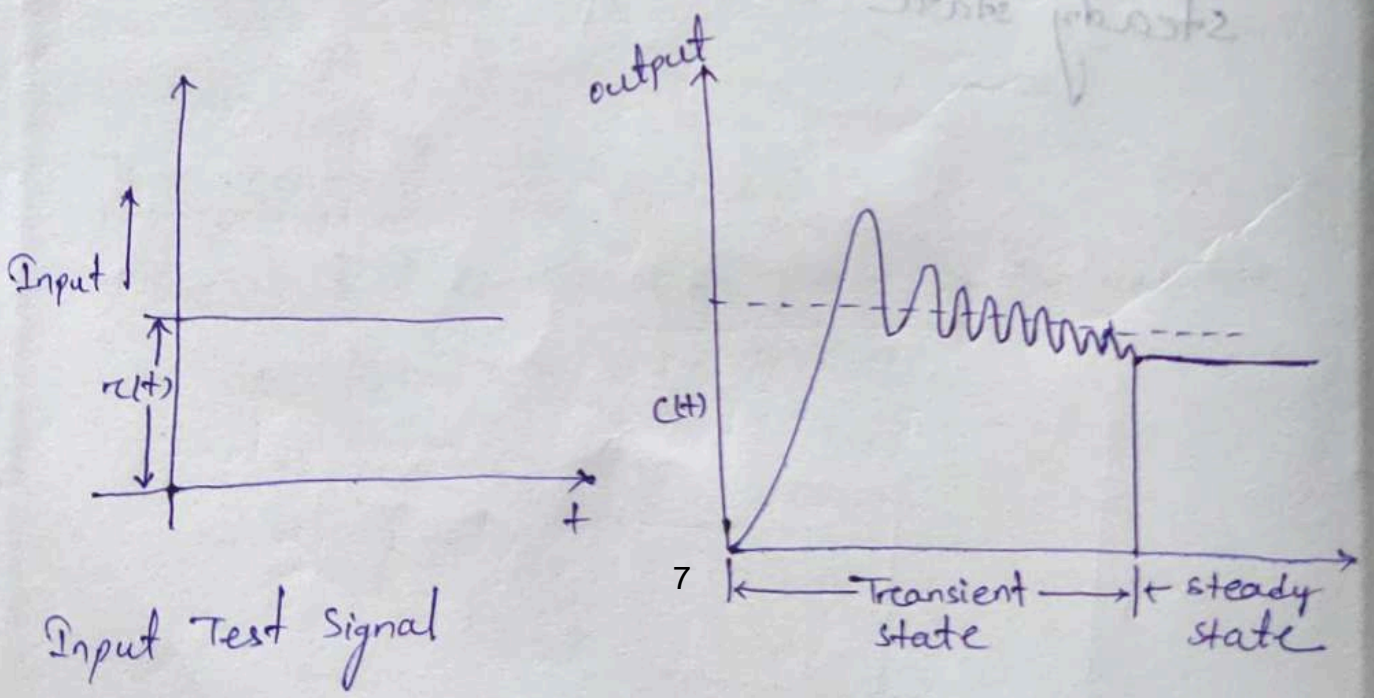 Input
r(t)
t
Input Test Signal
output
C(t)
7
Transient
state
steady
state